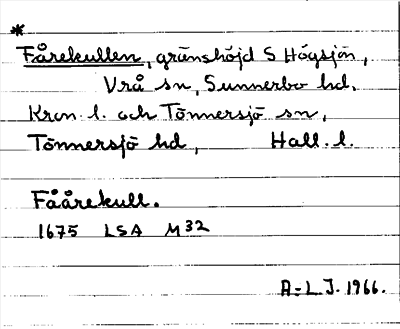 *
Fårekullen, gränshöjd S Högsjön,
Vrå sn, Sunnerbo hd,
Kron. l. och Tönnersjö sn,
Tönnersjö hd, Hall. l.
Fåårekull.
1675 LSA M32
A-L J. 1966.